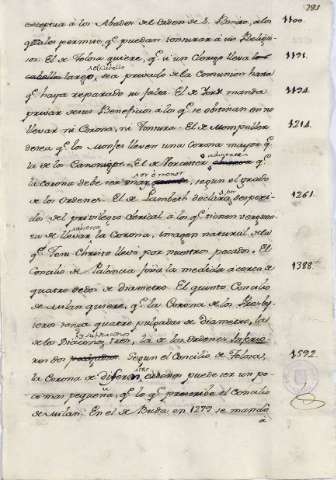 381
exceptua à los Abades del orden de S. Benito, à los 1100.
quales permite, qe puedan tonsurar à sus Religio-
sos. El de Tolosa quiere, qe si un Clerigo lleva 1191.
el cabello largo, sea privado de la Comunion hasta
qe haya reparado su falta. El de York manda 1194.
privar de sus Beneficios à los qe se obstinan en no
llevar ni Corona, ni Tonsura. El de Mompeller 1214.
desea qe los Monjes lleven una Corona mayor qe
la de los Canonigos. El de Vorcester qe
la Corona debe ser mayor ò menor, segun el grado
de los ordenes. El de Lambeth declara por desposei- 1261.
dos del privilegio clerical à los qe tienen verguen-
za de llevar la Corona, imagen natural de la
qe Jesu Christo llevò por nuestros pecados. El
Concilio de Palencia fixa la medida à cerca de 1388.
quatro dedos de diametro. El quinto Concilio
de Milan quiere, qe la Corona de los Presby-
teros tenga quatro pulgadas de diametro, la
de los Diaconos tres, la de los Ordenes Inferio-
res dos. Segun el Concilio de Tolosa, 1592.
la Corona de puede ser un po-
co mas pequeña, qe lo qe prescribe el Concilio
de Milan. En el de Buda, en 1279 se manda
à